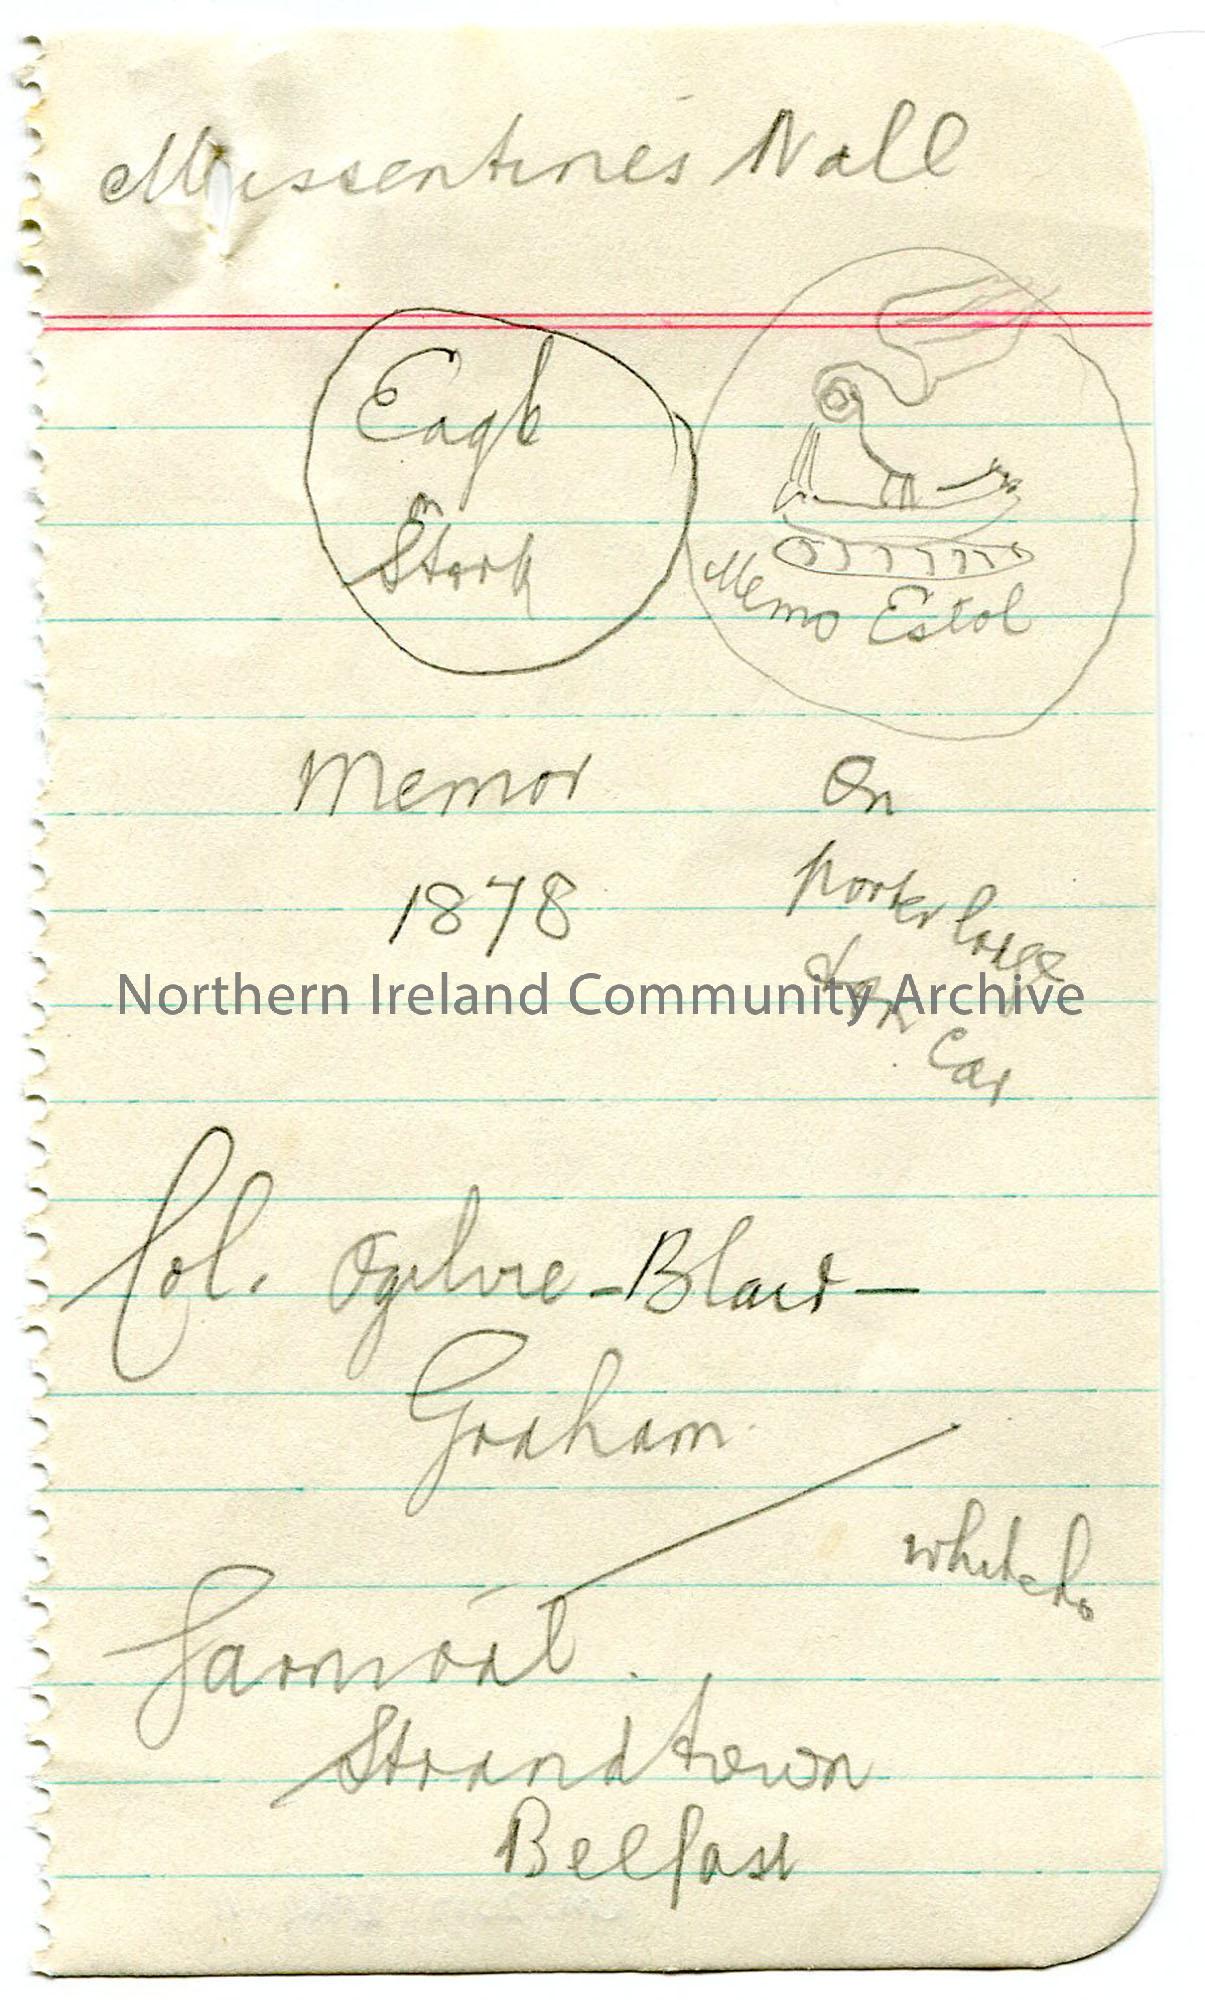 Mussentines Nall
Eagle
on
Stork
Memo Estol
Memor
1878
On
porter
Car
Northern Ireland Community Archive
Col. Ogilvie-Blair-
Graham
Larnoal
Strandtown
Belfast